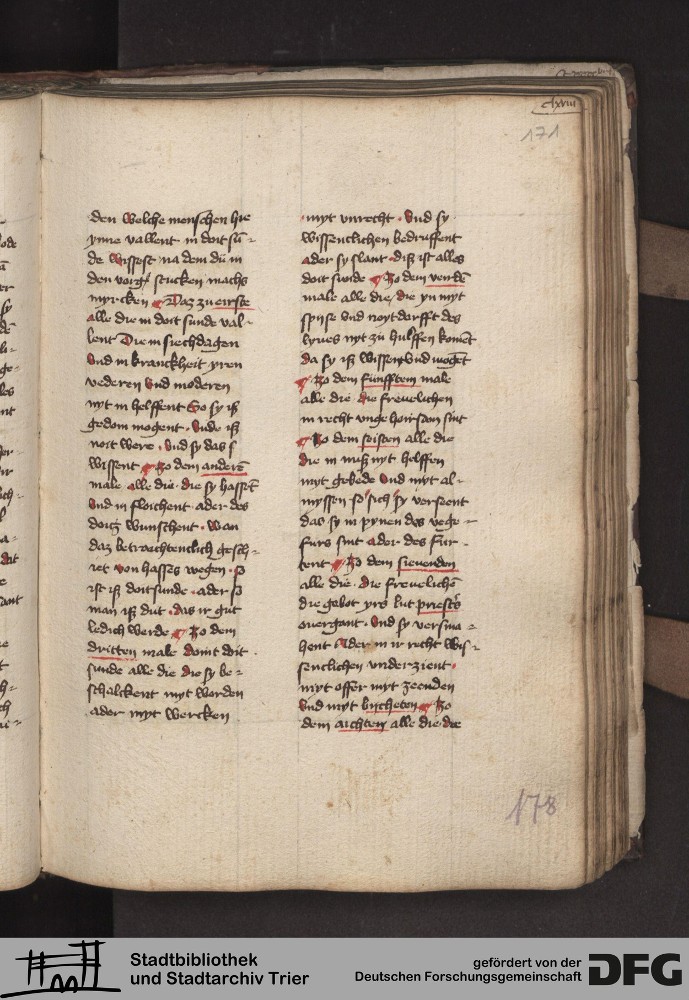 clxviii
171
den welche menschen hie
ynne vallent in doit sū-
de wissest na dem dü in
den vorgͣ stucken machs
myrcken Daz zu eirste
alle die in doit sunde val-
lent Die in siechdagen
vnd in kranckheit yren
vederen vnd moderen
nyt in helffent So sy iß
gedoin mogent. vnde iß
noit were. vnd sy das
wissent Zo dem anderē
male alle die. die sy hassēt
vnd in floichent ader des
doitz wunschent. wan
daz betraichtenclich gesch-
iet von hasses wegen. so
ist iß doitsunde. ader so
man iß dut. das ir gut
ledich werde Zo dem
dritten male doint doit
sunde alle die die sy be-
schalckent myt worden
ader myt wercken
myt vnrecht. vnd sy
wissenclichen bedruffent
ader sy slant. diß ist alles
doit sunde Zo dem verdē
male alle die, die yn nyt
spijse vnd noytdorfft des
lyues nyt zu hulffen komēt
da sy iß wissent vnd mogēt
Zo dem funfften male
alle die. die freuelichen
in recht vngehoirsam sint
Zo dem seisten alle die
die in nuß nyt helffen
myt gebede vnd myt al-
myssen so sich sy verseent
das sy in pynen des vege-
furs sint ader des fur-
tent Zo dem sieuenden
alle die. die freuelichē
die gebot yrs lut priesters
ouergant. vnd sy versma-
hent Ader in ir recht wis-
senclichen vnderzient.
myt offer myt zeenden
vnd myt bijcheten Zo
dem aichten alle die. die
178
Stadtbibliothek
und Stadtarchiv Trier
gefördert von der
Deutschen Forschungsgemeinschaft
DFG